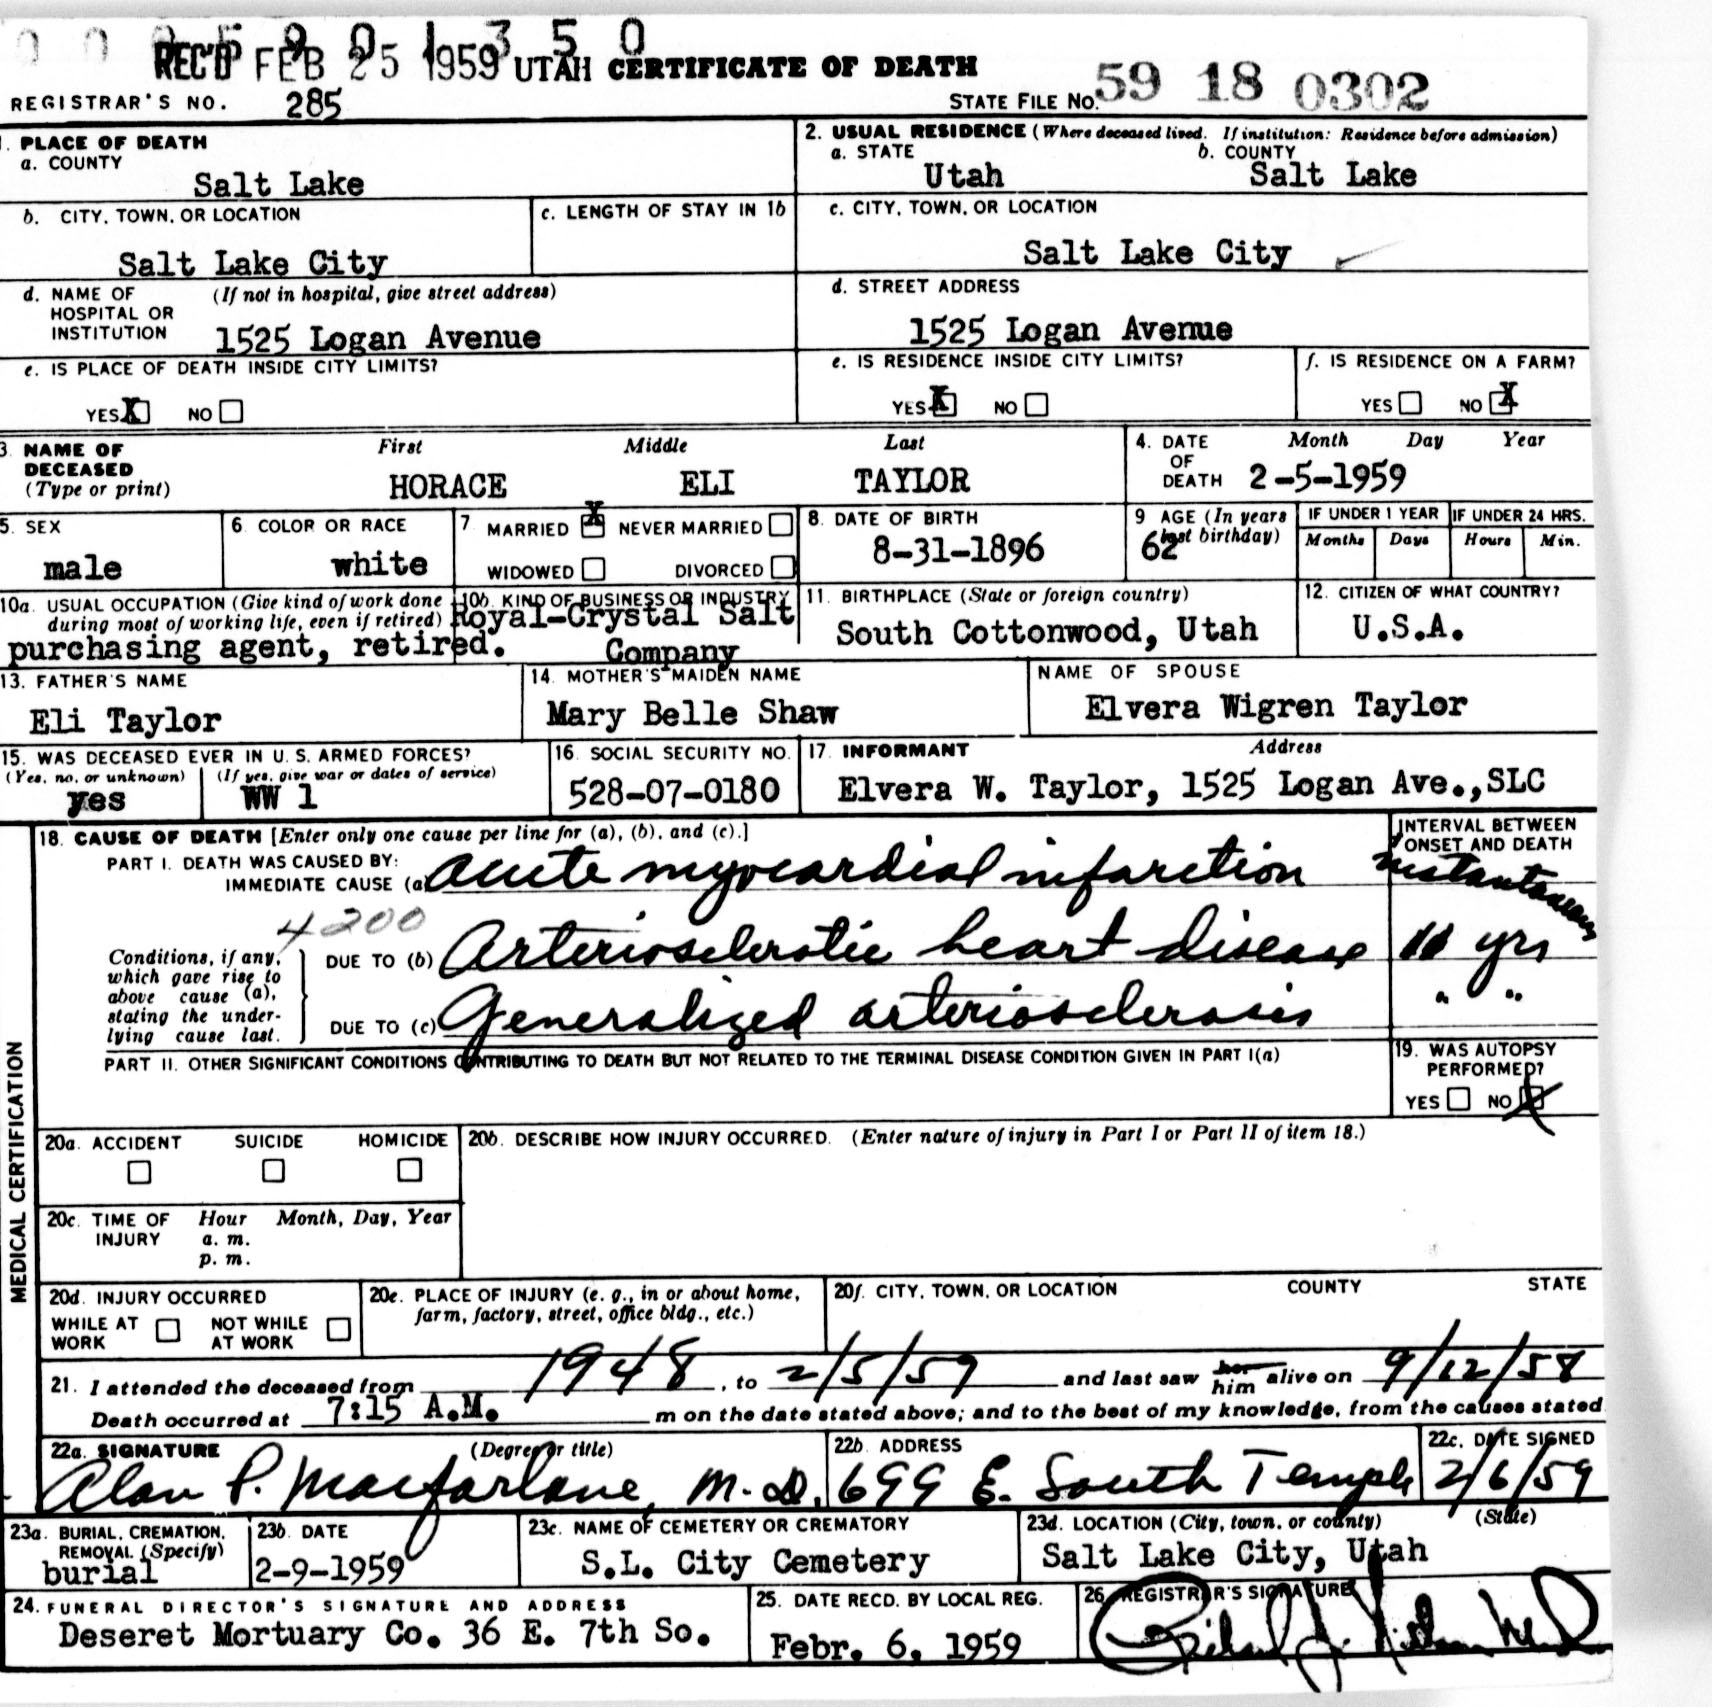 0 0 0 5 9 0 1 3 5 0
REC'D FEB 25 1959 UTAH CERTIFICATE OF DEATH
REGISTRAR'S NO. 285
STATE FILE NO. 59 18 0302
1. PLACE OF DEATH
a. COUNTY
Salt Lake
2. USUAL RESIDENCE (Where deceased lived. If institution: Residence before admission)
a. STATE b. COUNTY
Utah Salt Lake
b. CITY, TOWN, OR LOCATION
Salt Lake City
c. LENGTH OF STAY IN 1b
c. CITY, TOWN, OR LOCATION
Salt Lake City
d. NAME OF HOSPITAL OR INSTITUTION (If not in hospital, give street address)
1525 Logan Avenue
d. STREET ADDRESS
1525 Logan Avenue
e. IS PLACE OF DEATH INSIDE CITY LIMITS?
YES X NO
e. IS RESIDENCE INSIDE CITY LIMITS?
YES X NO
f. IS RESIDENCE ON A FARM?
YES NO X
3. NAME OF DECEASED (Type or print)
First Middle Last
HORACE ELI TAYLOR
4. DATE OF DEATH Month Day Year
2-5-1959
5. SEX
male
6. COLOR OR RACE
white
7. MARRIED X NEVER MARRIED
WIDOWED DIVORCED
8. DATE OF BIRTH
8-31-1896
9 AGE (In years last birthday)
62
IF UNDER 1 YEAR IF UNDER 24 HRS.
Months Days Hours Min.
10a. USUAL OCCUPATION (Give kind of work done during most of working life, even if retired)
purchasing agent, retired.
10b. KIND OF BUSINESS OR INDUSTRY
Royal-Crystal Salt
Company
11. BIRTHPLACE (State or foreign country)
South Cottonwood, Utah
12. CITIZEN OF WHAT COUNTRY?
U.S.A.
13. FATHER'S NAME
Eli Taylor
14. MOTHER'S MAIDEN NAME
Mary Belle Shaw
NAME OF SPOUSE
Elvera Wigren Taylor
15. WAS DECEASED EVER IN U.S. ARMED FORCES?
(Yes, no, or unknown) (If yes, give war or dates of service)
yes WW 1
16. SOCIAL SECURITY NO.
528-07-0180
17. INFORMANT Address
Elvera W. Taylor, 1525 Logan Ave.,SLC
MEDICAL CERTIFICATION
18. CAUSE OF DEATH [Enter only one cause per line for (a), (b), and (c).]
INTERVAL BETWEEN ONSET AND DEATH
PART I. DEATH WAS CAUSED BY:
IMMEDIATE CAUSE (a) Acute myocardial infarction instantaneous
4200
Conditions, if any, which gave rise to above cause (a), stating the underlying cause last.
DUE TO (b) Arteriosclerotic heart disease 11 yrs
DUE TO (c) Generalized arteriosclerosis " "
PART II. OTHER SIGNIFICANT CONDITIONS CONTRIBUTING TO DEATH BUT NOT RELATED TO THE TERMINAL DISEASE CONDITION GIVEN IN PART I(a)
19. WAS AUTOPSY PERFORMED?
YES NO X
20a. ACCIDENT SUICIDE HOMICIDE
20b. DESCRIBE HOW INJURY OCCURRED. (Enter nature of injury in Part I or Part II of item 18.)
20c. TIME OF INJURY Hour Month, Day, Year
a. m.
p. m.
20d. INJURY OCCURRED
WHILE AT WORK NOT WHILE AT WORK
20e. PLACE OF INJURY (e. g., in or about home, farm, factory, street, office bldg., etc.)
20f. CITY, TOWN, OR LOCATION COUNTY STATE
21. I attended the deceased from 1948, to 2/5/59 and last saw her him alive on 9/12/58
Death occurred at 7:15 A.M. m on the date stated above; and to the best of my knowledge, from the causes stated
22a. SIGNATURE (Degree or title)
Alan P. Macfarlane, M.D.
22b. ADDRESS
699 E. South Temple
22c. DATE SIGNED
2/6/59
23a. BURIAL, CREMATION, REMOVAL (Specify)
burial
23b. DATE
2-9-1959
23c. NAME OF CEMETERY OR CREMATORY
S.L. City Cemetery
23d. LOCATION (City, town, or county) (State)
Salt Lake City, Utah
24. FUNERAL DIRECTOR'S SIGNATURE AND ADDRESS
Deseret Mortuary Co. 36 E. 7th So.
25. DATE RECD. BY LOCAL REG.
Febr. 6, 1959
26 REGISTRAR'S SIGNATURE